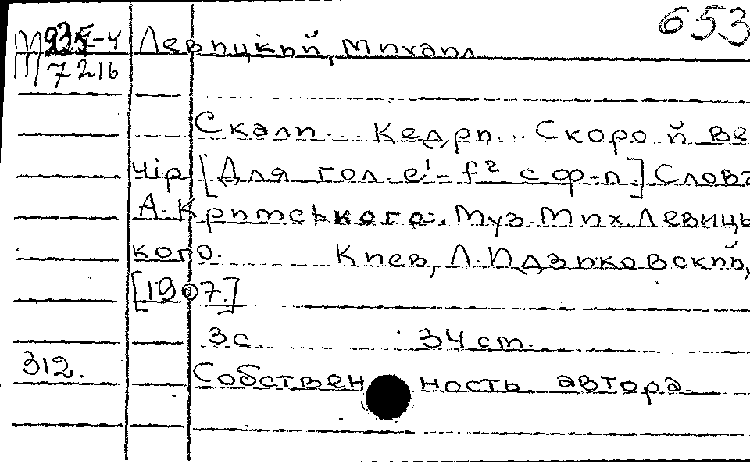 653
М 935-4 Левицкий, Михаил
7216
Скали... Кедри... Скоро й ве
чір [Для гол. e¹-f² с ф-п.] Слова
А. Кримського. Муз. Мих. Левиць
кого. Киев, Л. Идзиковский,
[1907.]
3 с. 34 cm.
312. Собствен ность автора